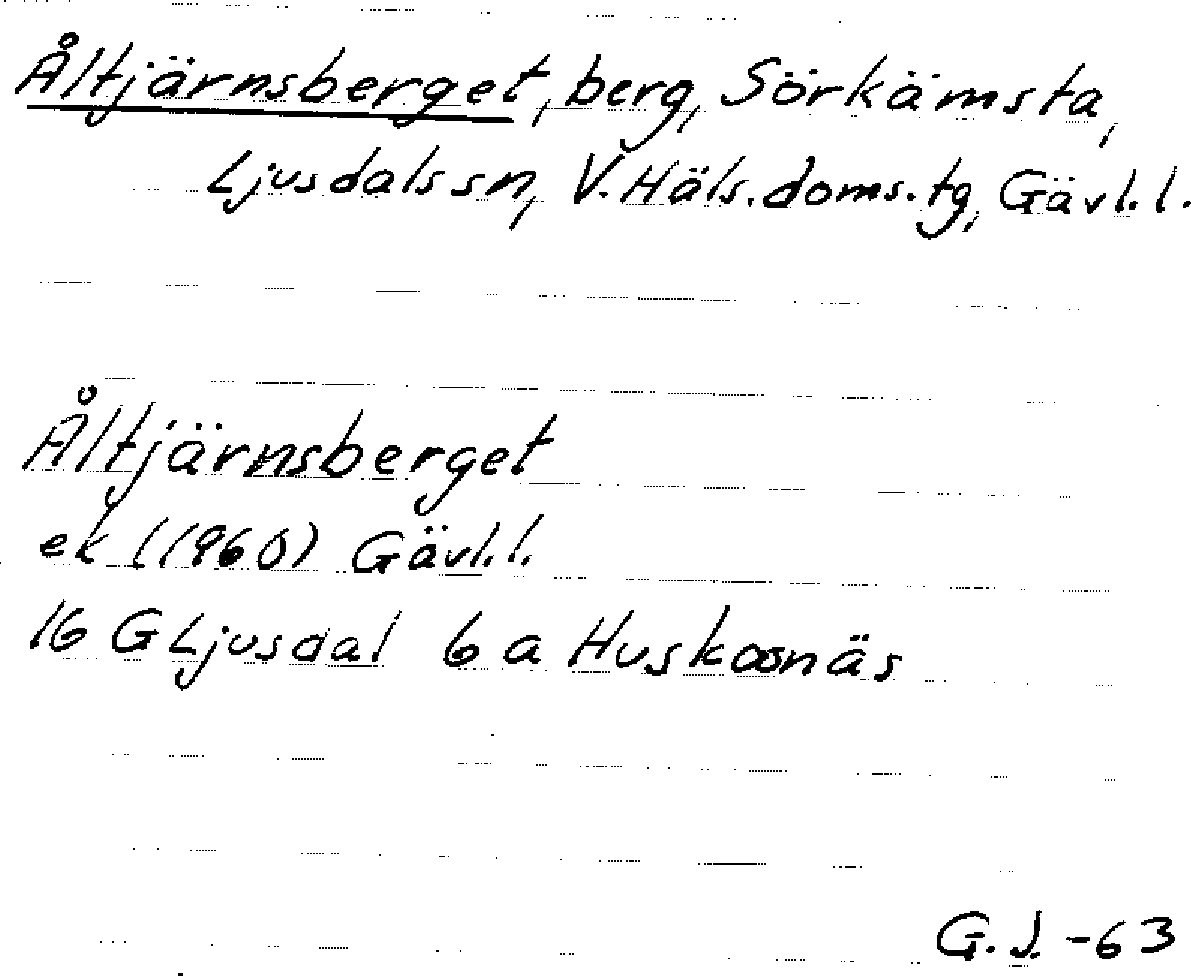 Åltjärnsberget, berg, Sörkämsta,
Ljusdals sn, V. Häls. doms. tg, Gävl. l.
Åltjärnsberget
ek (1960) Gävl. l.
16 G Ljusdal 6 a Huskasnäs
G. J. -63